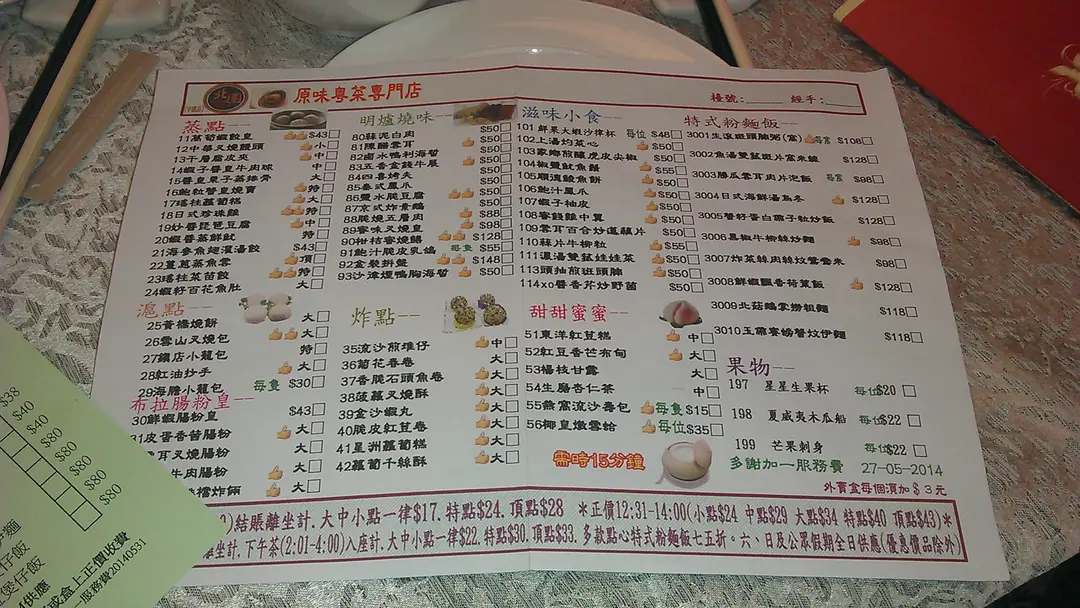 原味粵菜專門店
檯號:______ 經手:______
蒸點--
11萬筍蝦餃皇 $43
12中華叉燒饅頭 小
13千層腐皮夾 中
14蝦子醬皇牛肉球 中
15醬皇栗子蒸雞骨 大
16鮑粒醬皇燒賣 特
17瑤柱蘿蔔糕 大
18日式珍珠雞 特
19炒醬琵琶豆腐 中
20蝦醬蒸鮮魷 特
21海參魚翅灌湯餃 $43
22薑蔥蒸魚雲 頂
23瑤柱菜苗餃 特
24蝦籽百花魚肚 大
滬點--
25黃橋燒餅 大
26雪山叉燒包 大
27鎮店小籠包 特
28紅油抄手 大
29海膽小籠包 每隻 $30
布拉腸粉皇--
30鮮蝦腸粉皇 $43
31皮蛋香茜腸粉 大
耳叉燒腸粉 大
牛肉腸粉 大
檔炸兩 大
明爐燒味--
80蒜泥白肉 $50
81陳醋雲耳 $50
82鹵水鴨利海蜇 $50
83五香金錢牛展 $50
84四喜烤夫 $50
85泰式鳳爪 $50
86鹽水脆豆腐 $50
87京式炸素鵝 $50
88脆燒五層肉 $88
89蜜味叉燒皇 $98
90柑桔蜜燒腩 $128
91鮑汁脆皮乳鴿 每隻 $55
92金裝拼盤 $148
93沙漬煙鴨胸海蜇 $50
炸點--
35流沙煎堆仔 中
36菊花春卷 大
37香脆石頭魚卷 大
38菠蘿叉燒酥 大
39金沙蝦丸 大
40脆皮紅荳卷 大
41星洲蘿蔔糕 大
42蘿蔔千絲酥 大
滋味小食--
101 鮮果大蝦沙律杯 每位 $48
102上湯灼菜心 $50
103家鄉煎釀虎皮尖椒 $50
104椒鹽魷魚鬚 $55
105順德鯪魚餅 $50
106鮑汁鳳爪 $50
107蝦子柚皮 $50
108蜜餞雞中翼 $50
109雲耳百合炒蓮藕片 $50
110蒜片牛柳粒 $55
111濃湯雙菇娃娃菜 $50
113頭抽煎斑頭腩 $50
114xo醬香芹炒野菌 $50
甜甜蜜蜜--
51東洋紅荳糕 中
52紅豆香芒布甸 大
53楊枝甘露 大
54生磨杏仁茶 中
55燕窩流沙壽包 每隻 $15
56椰皇燉雪蛤 每位 $35
需時15分鐘
特式粉麵飯--
3001生滾斑頭腩粥(窩) 每窩 $108
3002魚湯雙菇斑片窩米線 $128
3003勝瓜雲耳肉片泡飯 每窩 $98
3004日式海鮮湯烏冬 $128
3005蟹籽蛋白帶子粒炒飯 $128
3006黑椒牛柳絲炒麵 $98
3007炸菜絲肉絲炆鴛鴦米 $98
3008鮮蝦飄香荷葉飯 $128
3009北菇鵝掌撈粗麵 $118
3010玉簾賽螃蟹炆伊麵 $118
果物--
197 星星生果杯 每位 $20
198 夏威夷木瓜船 每位 $22
199 芒果刺身 每位 $22
多謝加一服務費 27-05-2014
外賣盒每個須加 $ 3 元
0)結賬離坐計.大中小點一律$17.特點$24.頂點$28 *正價12:31-14:00(小點$24 中點$29 大點$34 特點$40 頂點$43)*
離坐計.下午茶(2:01-4:00)入座計.大中小點一律$22.特點$30.頂點$33.多款點心特式粉麵飯七五折。六、日及公眾假期全日供應(優惠價品除外)
$38
$40
$40
$80
$80
$80
$80
$80
麵
仔飯
煲仔飯
供應
或盒上正價收費
一服務費20140531